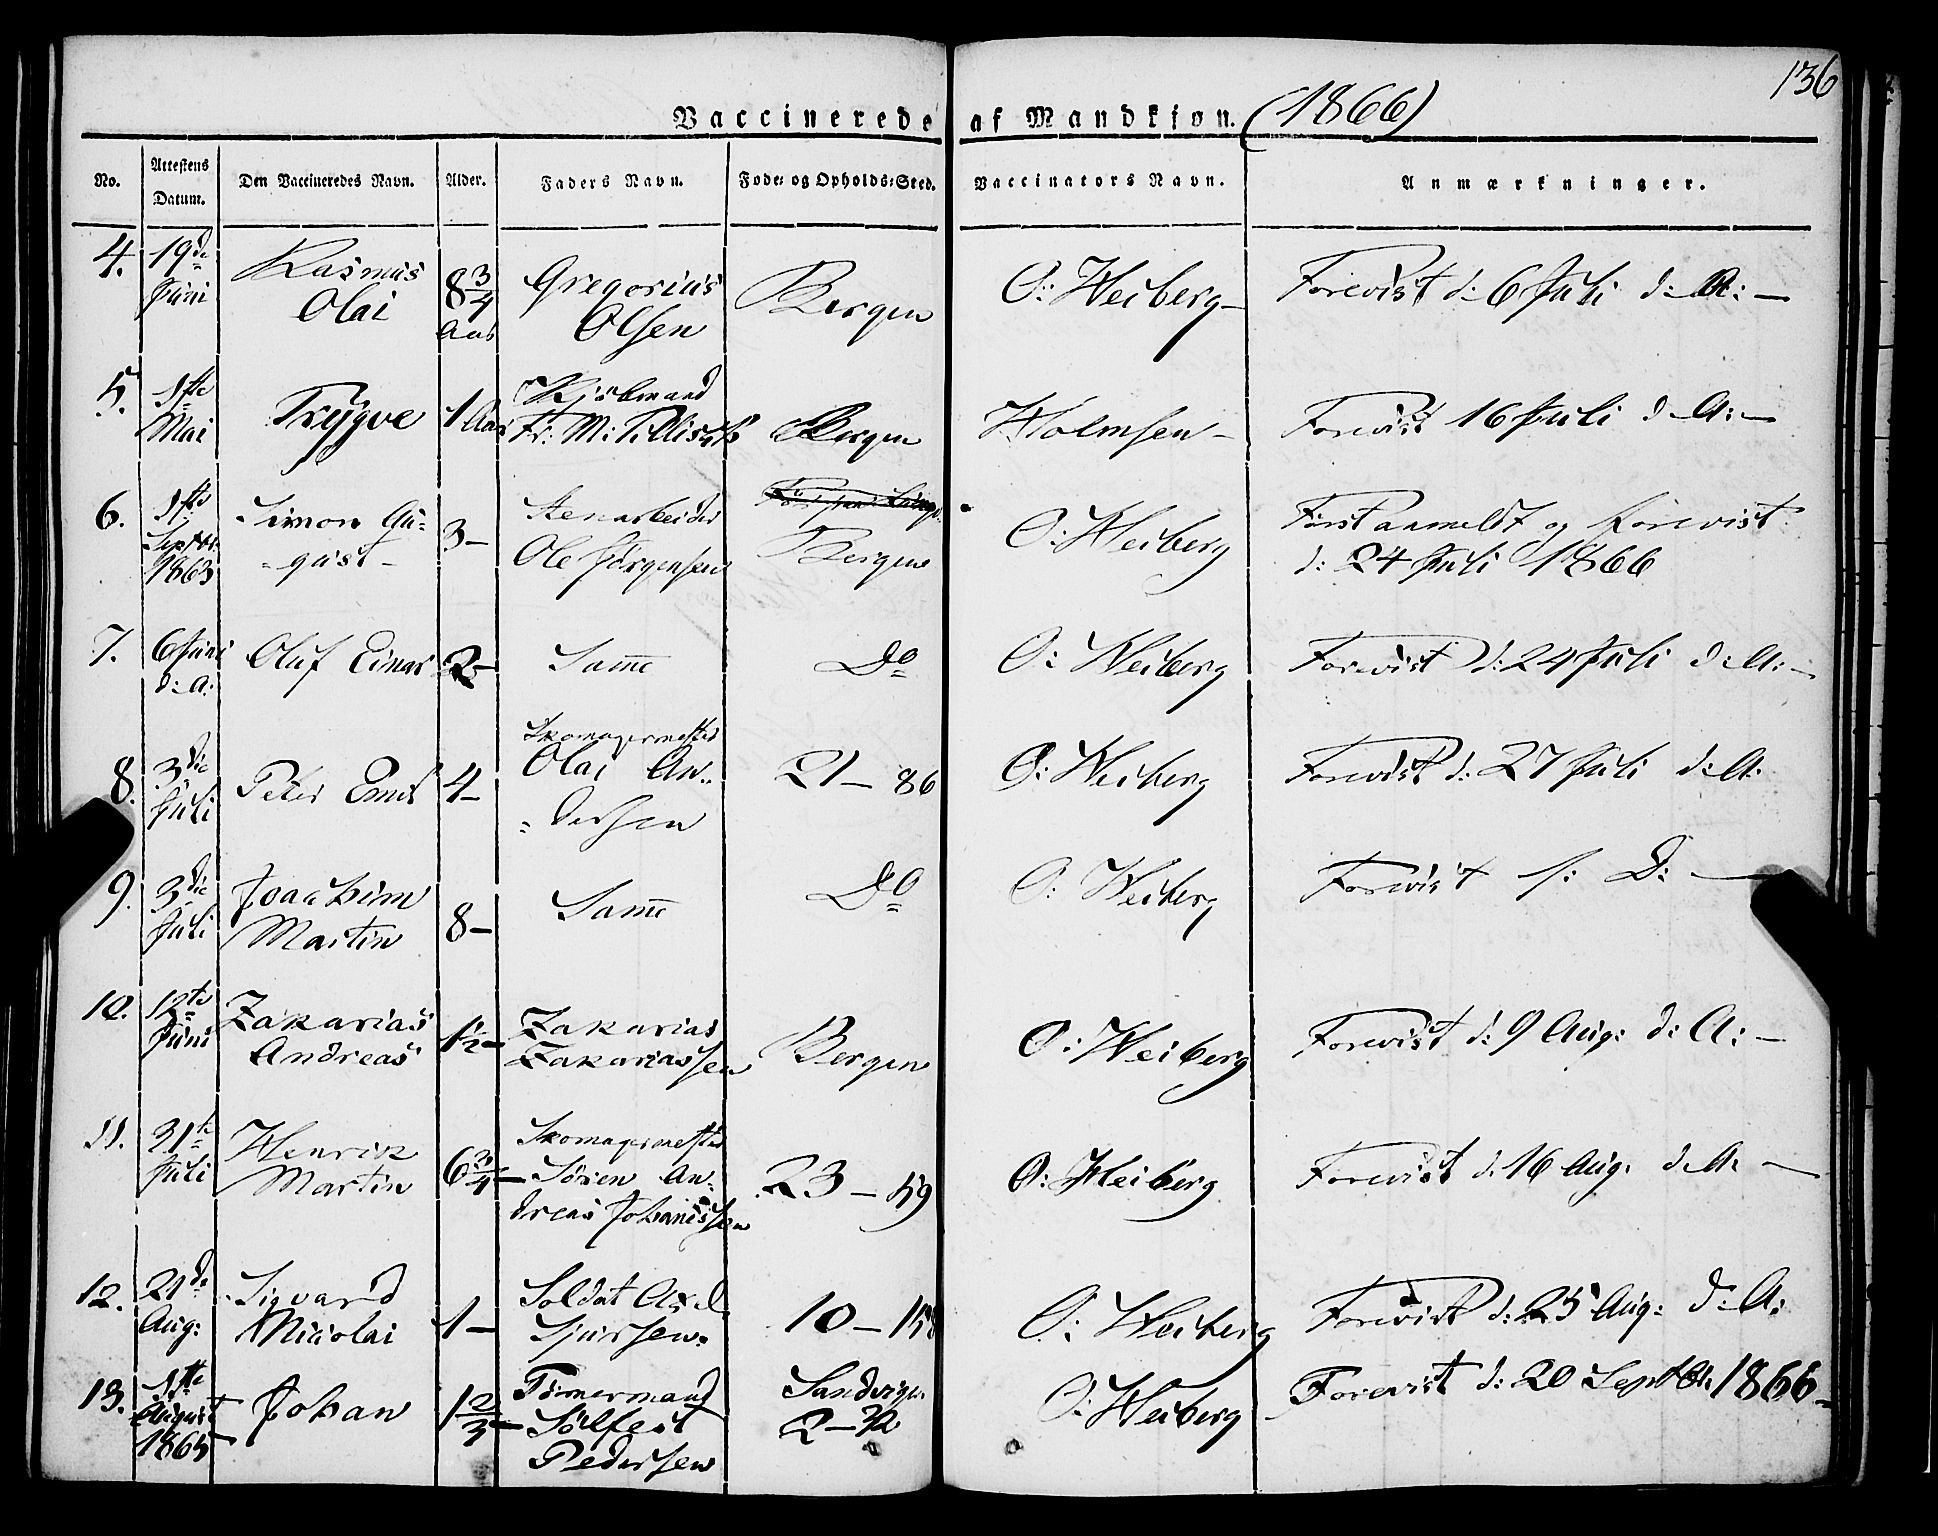 136
Vaccinerede af Mandkjøn. (1866)
No. Attestens Datum. Den Vaccineredes Navn. Alder. Faders Navn. Føde- og Opholds-Sted. Vaccinators Navn. Anmærkninger.
4. 19de Juni Rasmus Olai 8 3/4 Aar Gregorius Olsen Bergen O: Heiberg Forevist d: 6 Juli d: A:
5. 1ste Mai Trygve 1 Aar Kjøbmand Fr: M: Bergen Holmsen Forevist 16 Juli d: A:
6. 1ste Septbr. 1863 Simon Au-
gust 3 Stenarbeider Ole Jørgensen Bergen O: Heiberg Først anmeldt og forevist
d: 24 Juli 1866
7. 6 Juni d: A: Oluf Einar 2 Samme Do O: Heiberg Forevist d: 24 Juli d: A:
8. 3die Juli Peter Emil 4 Skomagermester Olai An-
dersen 21 – 86 O: Heiberg Forevist d: 27 Juli d: A:
9. 3die Juli Joachim Martin 8 Samme Do O: Heiberg Forevist s: D:
10. 12te Juni Zakarias Andreas 1 1/2 Zakarias Zakariassen Bergen O: Heiberg Forevist d: 9 Aug: d: A:
11. 31te Juli Henrik Martin 6 3/4 Skomagermester Sören An-
dreas Johanessen 23 – 59 O: Heiberg Forevist d. 16 Aug: d. A:
12. 21de Aug: Sigvard Nicolai 1 Soldat Axel Sjursen 10 – 158 O: Heiberg Forevist d: 25 Aug: d: A:
13. 1ste August 1865 Johan 1 2/3 Tömermand Sölfest Pedersen Sandvigen 2 – 32 O: Heiberg Forevist d: 20 Septbr 1866